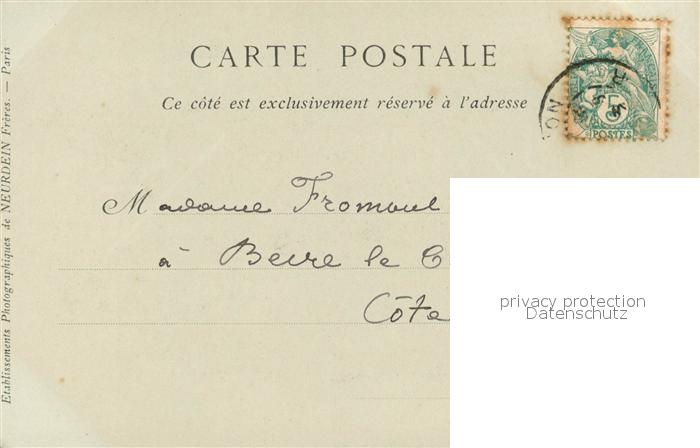 CARTE POSTALE
Ce côté est exclusivement réservé à l'adresse
Etablissements Photographiques de NEURDEIN Frères. — Paris
5
POSTES
Madame Fromont
à Beire le C
Côte
privacy protection
Datenschutz